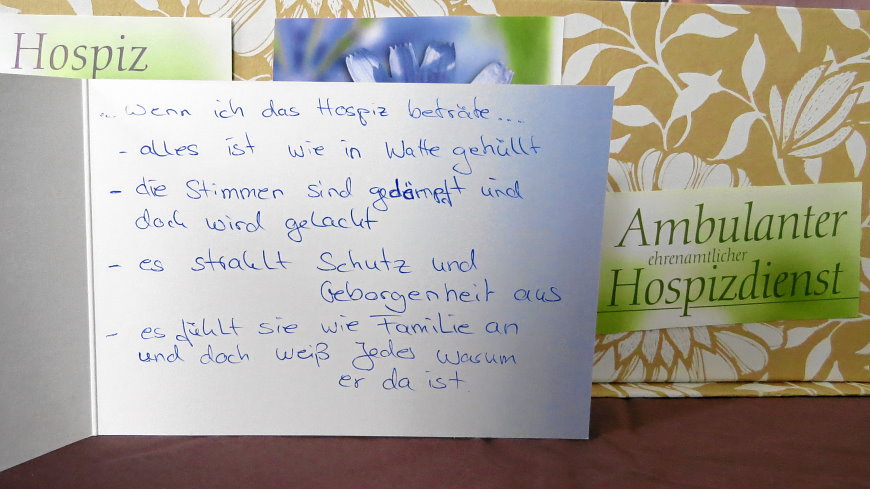 Hospiz
... wenn ich das Hospiz beträte...
- alles ist wie in Watte gehüllt
- die Stimmen sind gedämpft und
doch wird gelacht
- es strahlt Schutz und
Geborgenheit aus
- es fühlt sie wie Familie an
und doch weiß Jedes warum
er da ist.
Ambulanter
ehrenamtlicher
Hospizdienst